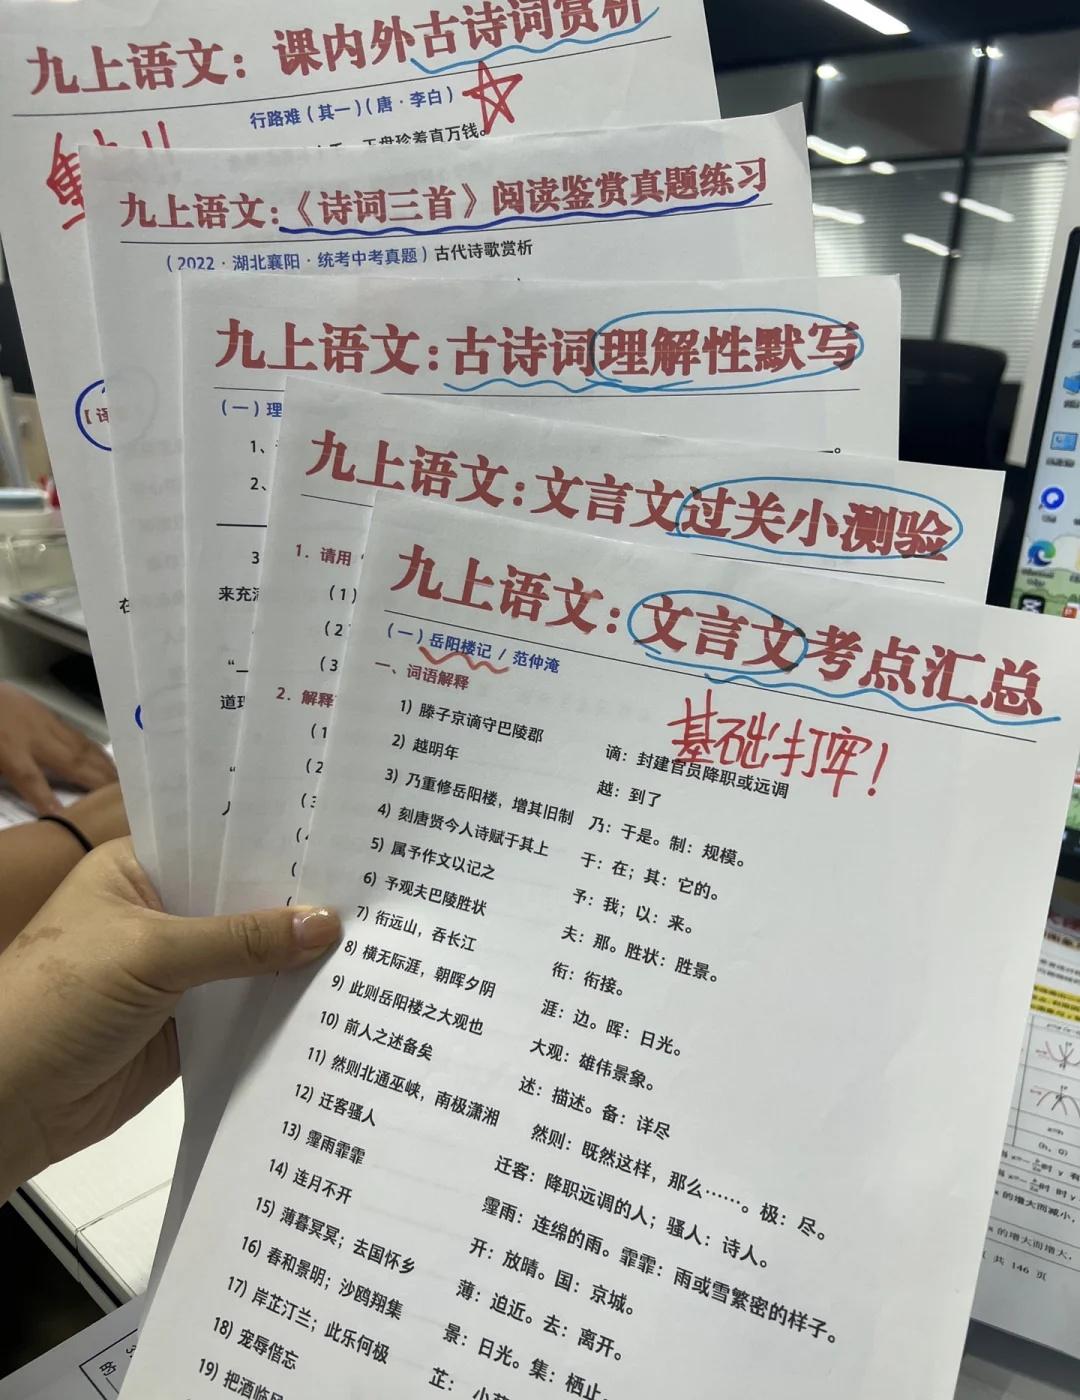 九上语文：课内外古诗词赏析
行路难（其一）（唐·李白）
玉盘珍羞直万钱。
九上语文：《诗词三首》阅读鉴赏真题练习
（2022·湖北襄阳·统考中考真题）古代诗歌赏析
九上语文：古诗词理解性默写
（一）理
1、
2、
3
来充
道理
九上语文：文言文过关小测验
1. 请用
（1）
（2
（3
2. 解释
（1
（2
九上语文：文言文考点汇总
（一）岳阳楼记 / 范仲淹
基础打牢！
一、词语解释
1）滕子京谪守巴陵郡 谪：封建官员降职或远调
2）越明年 越：到了
3）乃重修岳阳楼，增其旧制 乃：于是。制：规模。
4）刻唐贤今人诗赋于其上 于：在；其：它的。
5）属予作文以记之 予：我；以：来。
6）予观夫巴陵胜状 夫：那。胜状：胜景。
7）衔远山，吞长江 衔：衔接。
8）横无际涯，朝晖夕阴 涯：边。晖：日光。
9）此则岳阳楼之大观也 大观：雄伟景象。
10）前人之述备矣 述：描述。备：详尽
11）然则北通巫峡，南极潇湘 然则：既然这样，那么……。极：尽。
12）迁客骚人 迁客：降职远调的人；骚人：诗人。
13）霪雨霏霏 霪雨：连绵的雨。霏霏：雨或雪繁密的样子。
14）连月不开 开：放晴。国：京城。
15）薄暮冥冥；去国怀乡 薄：迫近。去：离开。
16）春和景明；沙鸥翔集 景：日光。集：栖止
17）岸芷汀兰；此乐何极 芷：小
18）宠辱偕忘
19）把酒临
共 146 页